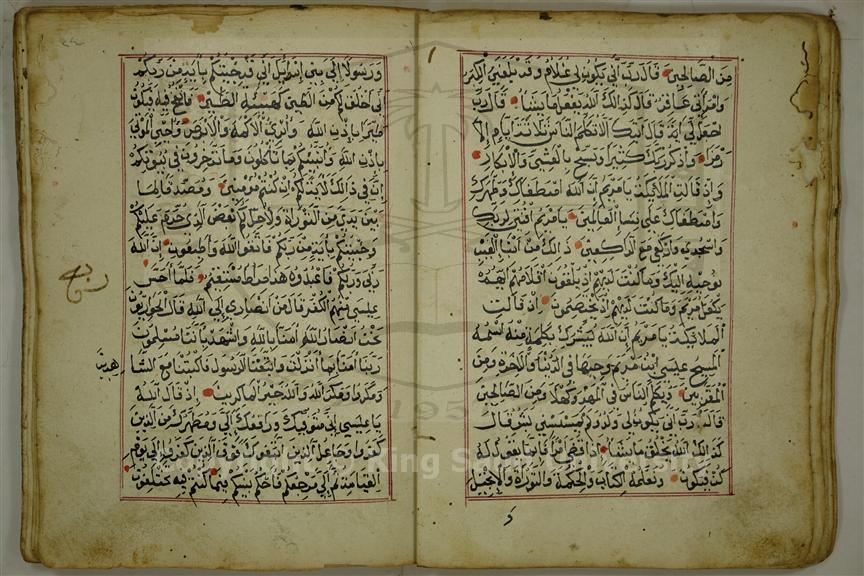 من الصالحين قال رب انى يكون لى غلام وقد بلغنى الكبر
وامراتى عاقر قال كذالك الله يفعل ما يشا قال رب
اجعل لى اية قال ايتك الا تكلم الناس ثلاثة ايام الا
رمزا واذكر ربك كثيرا وسبح بالعشى والابكار
واذ قالت الملائكة يا مريم ان الله اصطفاك وطهرك
واصطفاك على نسا العالمين يا مريم اقنتى لربك
واسجدى واركعى مع الراكعين ذالك من انبا الغيب
نوحيه اليك وما كنت لديهم اذ يلقون اقلامهم ايهم
يكفل مريم وما كنت لديهم اذ يختصمون اذ قالت
الملائكة يا مريم ان الله يبشرك بكلمة منه اسمه
المسيح عيسى ابن مريم وجيها فى الدنيا والاخرة ومن
المقربين ويكلم الناس فى المهد وكهلا ومن الصالحين
قالت رب انى يكون لى ولد ولم يمسسنى بشر قال
كذالك الله يخلق ما يشا اذا قضى امرا فانما يقول له
كن فيكون ونعلمه الكتاب والحكمة والتوراة والانجيل
ورسولا الى بنى اسرايل انى قد جيتكم باية من ربكم
انى اخلق لكم من الطين كهيئة الطير فانفخ فيه فيكون
طيرا باذن الله وابرى الاكمه والابرص واحى الموتى
باذن الله وانبئكم بما تاكلون وما تدخرون فى بيوتكم
ان فى ذالك لاية لكم ان كنتم مومنين ومصدقا لما
بين يدى من التوراة ولاحل لكم بعض الذى حرم عليكم
وجئتكم باية من ربكم فاتقوا الله واطيعون ان الله
ربى وربكم فاعبدوه هذا صراط مستقيم فلما احس
عيسى منهم الكفر قال من انصارى الى الله قال الحواريون
نحن انصار الله امنا بالله واشهد بانا مسلمون
ربنا امنا بما انزلت واتبعنا الرسول فاكتبنا مع الشا هدين
ومكروا ومكر الله والله خير الماكرين اذ قال الله
يا عيسى انى متوفيك ورافعك الى ومطهرك من الذين
كفروا وجاعل الذين اتبعوك فوق الذين كفروا الى يوم
القيامة ثم الى مرجعكم فاحكم بينكم فيما كنتم فيه تختلفون